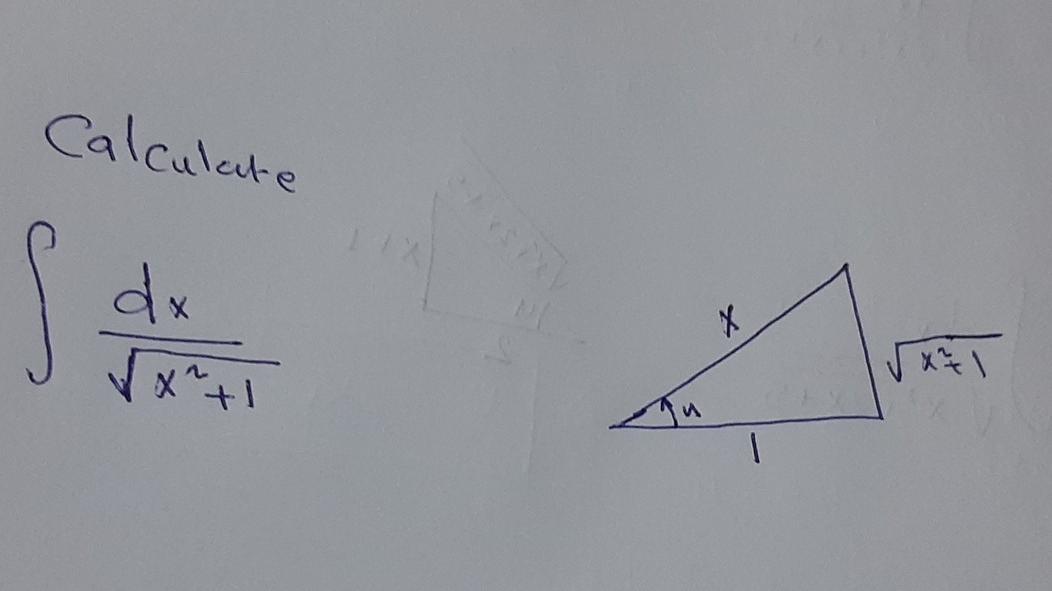 Calculate
∫ dx / √(x²+1)
x
√(x²+1)
u
1